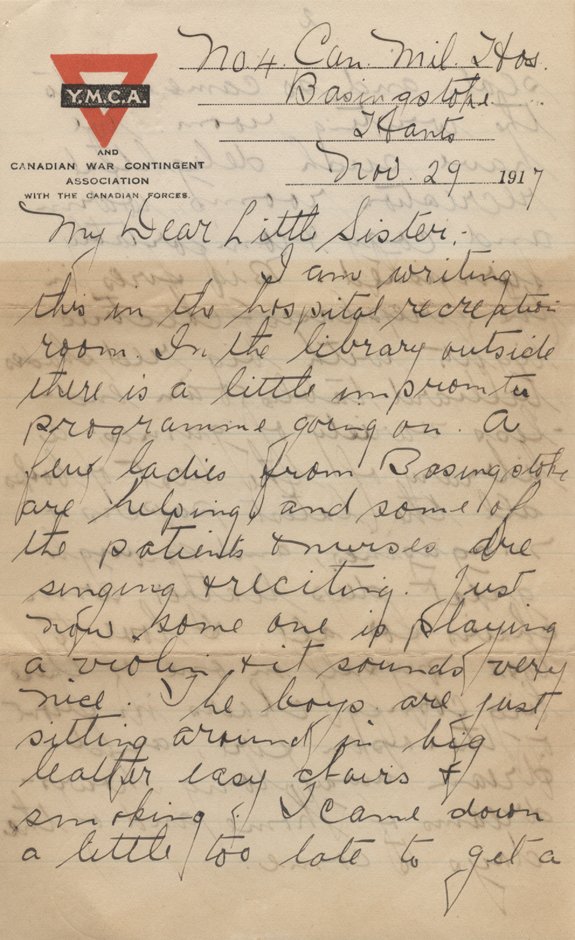 No. 4. Can. Mil. Hos.
Basingstoke
Hants
Nov. 29 1917
Y.M.C.A.
AND
CANADIAN WAR CONTINGENT
ASSOCIATION
WITH THE CANADIAN FORCES.
My Dear Little Sister:-
I am writing
this in the hospital recreation
room. In the library outside
there is a little impromtu
programme going on. A
few ladies from Basingstoke
are helping and some of
the patients & nurses are
singing & reciting. Just
now some one is playing
a violin & it sounds very
nice. The boys are just
sitting around in big
leather easy chairs &
smoking. I came down
a little too late to get a